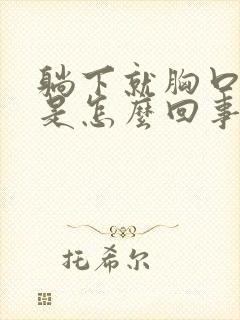 躺下就胸口
是怎麼回事
托希尔